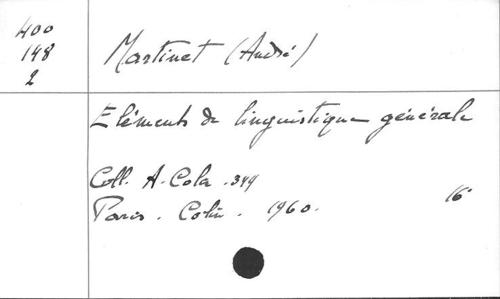 400
148
2
Martinet (André)
Eléments de linguistique générale
Coll. A. Colin . 349
Paris . Colin . 1960.
16°